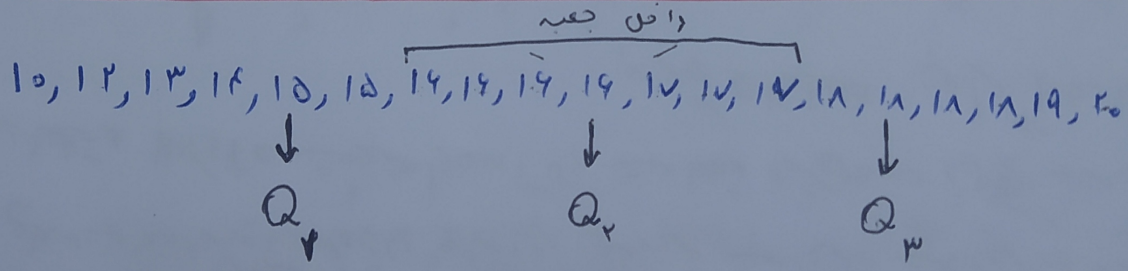 داخل جعبه
۱۰, ۱۲, ۱۳, ۱۴, ۱۵, ۱۵, ۱۶, ۱۶, ۱۶, ۱۶, ۱۷, ۱۷, ۱۷, ۱۸, ۱۸, ۱۸, ۱۸, ۱۹, ۲۰
Q۱ Q۲ Q۳